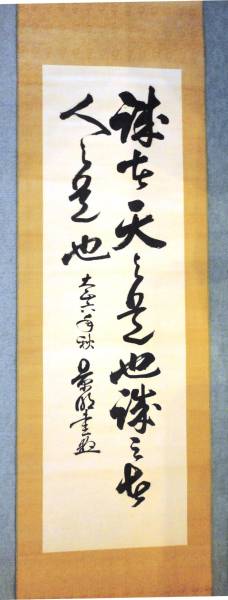 誠者天之道也誠之者
人之道也
大正六年秋
景明書